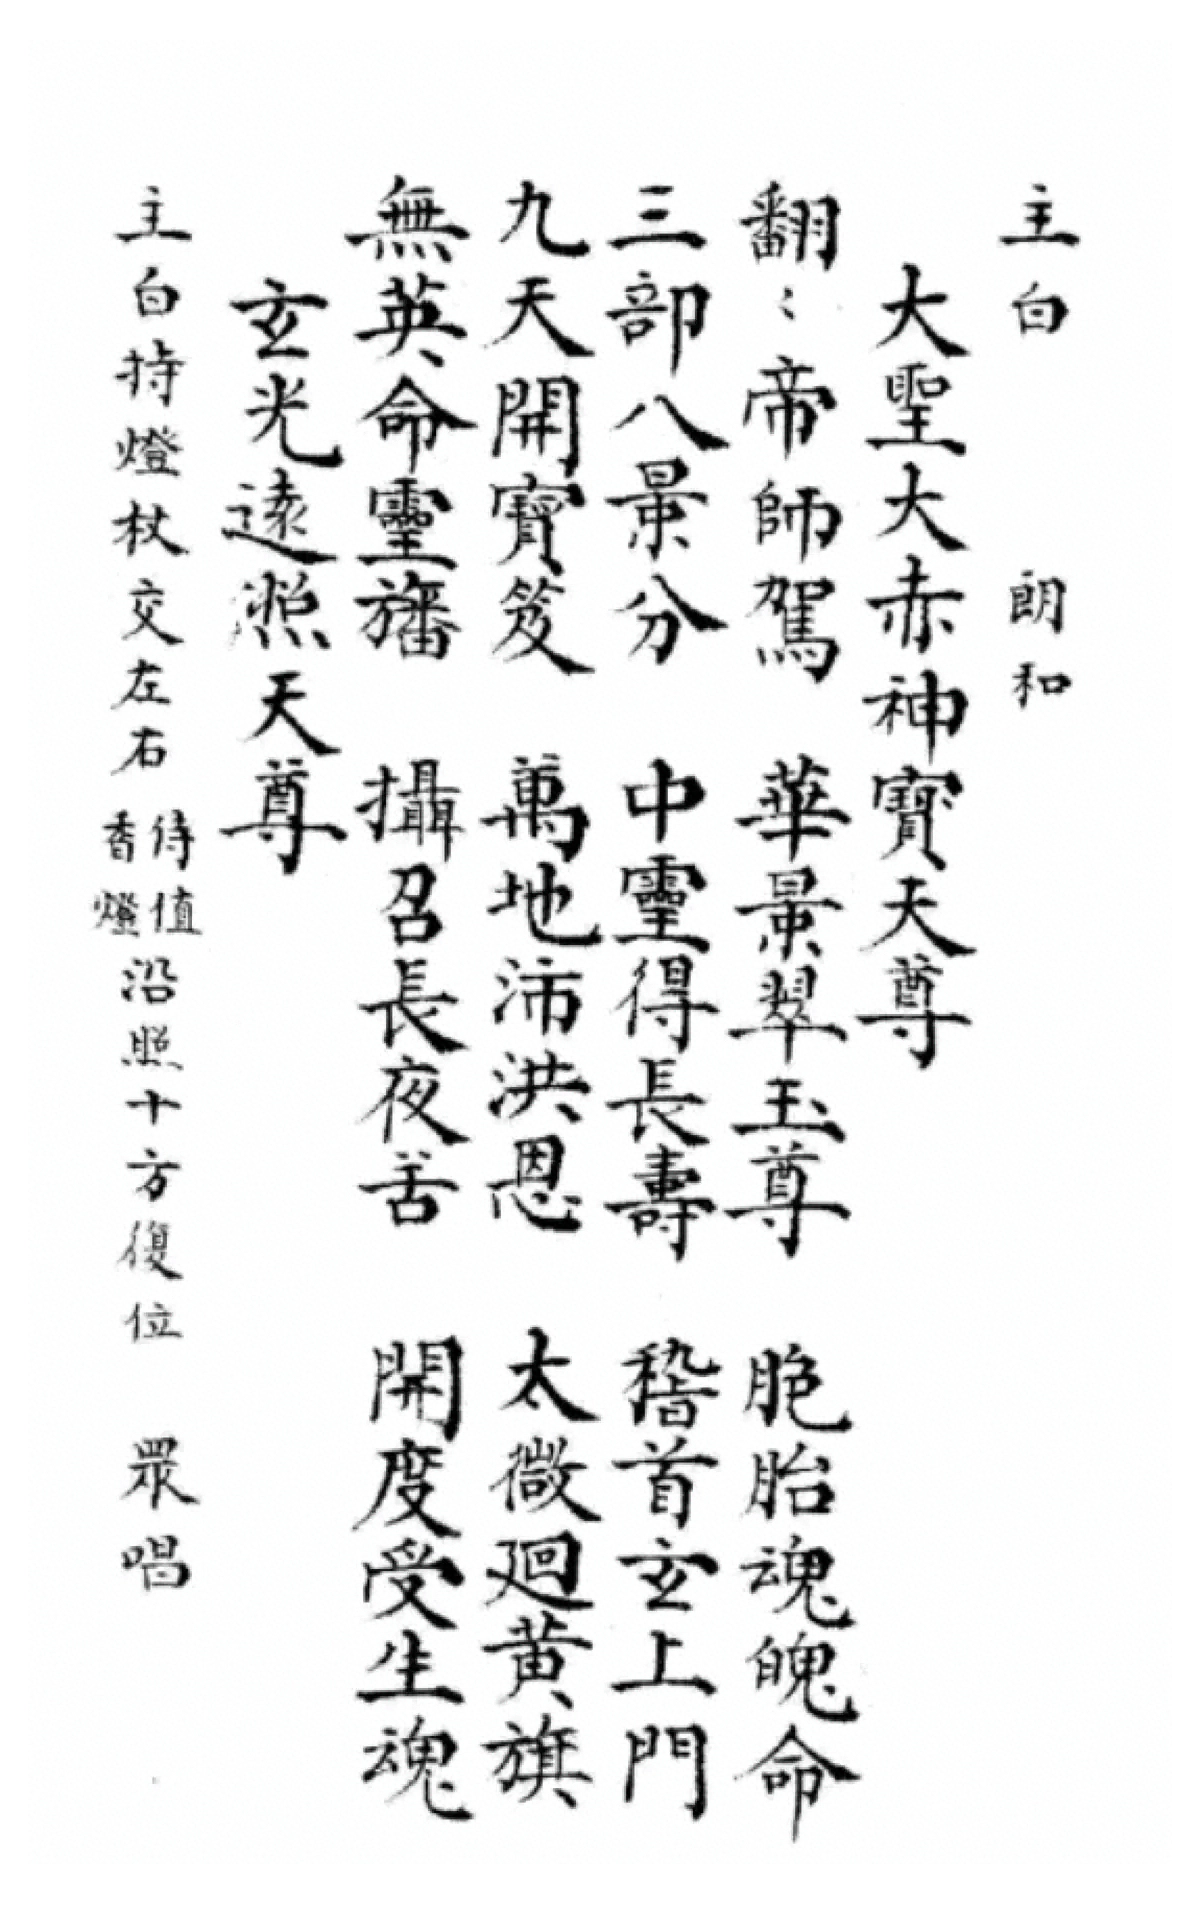 主白 朗和
大聖大赤神寶天尊
翻〻帝師駕 華景翠玉尊 胞胎魂魄命
三部八景分 中靈得長壽 稽首玄上門
九天開寶笈 萬地沛洪恩 太微廻黃旗
無英命靈旛 攝召長夜苦 開度受生魂
玄光遠照天尊
主白持燈杖交左右侍值香燈沿照十方復位 眾唱